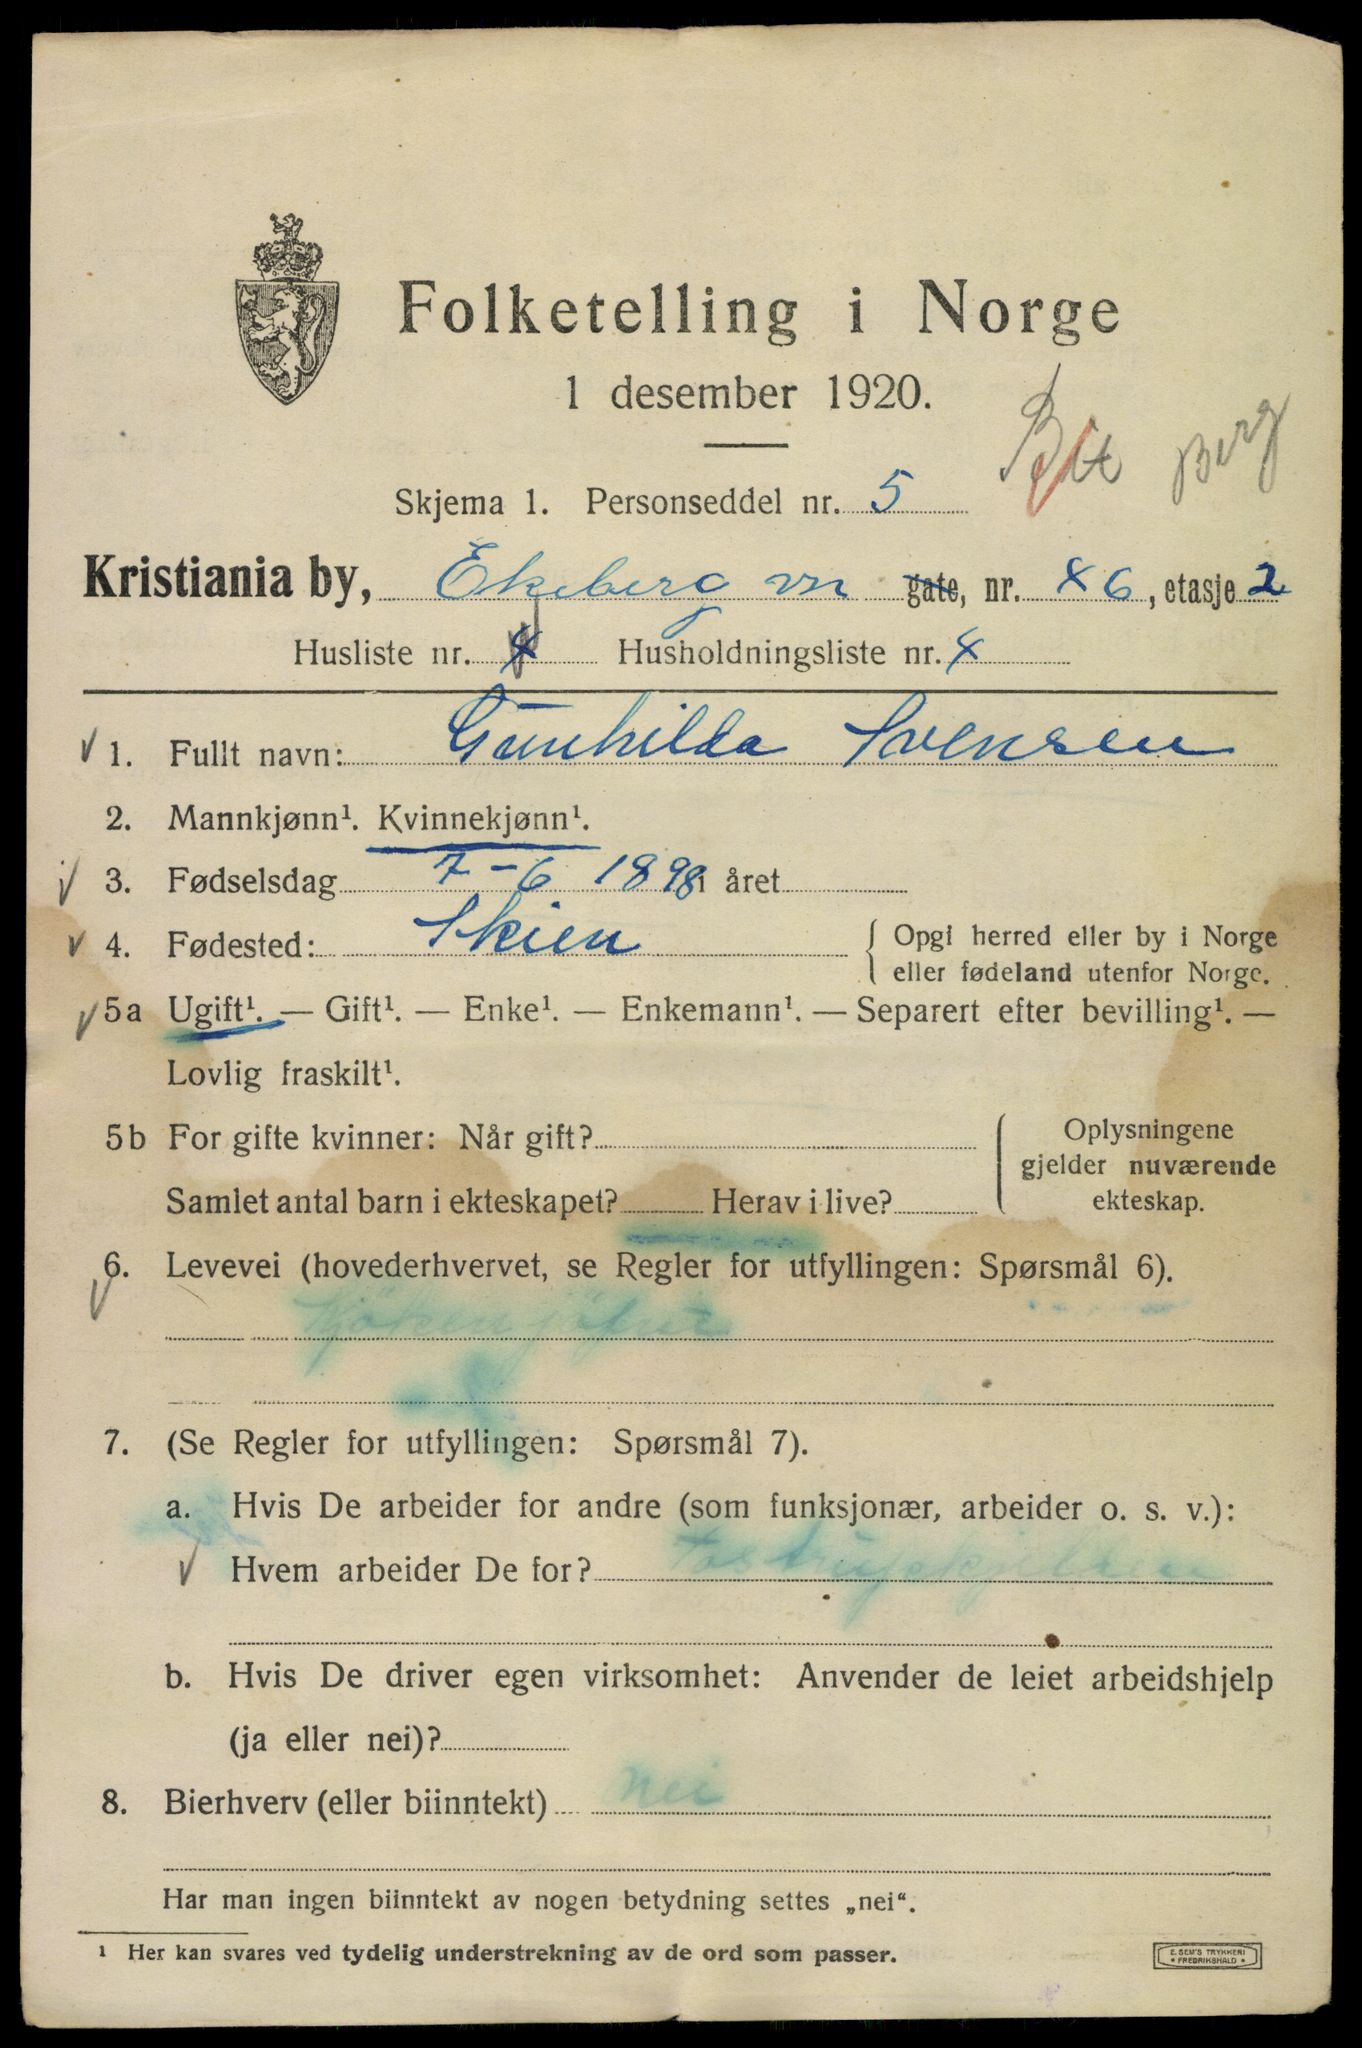 Folketelling i Norge
1 desember 1920.
Berg
Skjema 1. Personseddel nr. 5
Kristiania by, Ekeberg vn gate, nr. 46, etasje 2
Husliste nr. 4 Husholdningsliste nr. 4
1. Fullt navn: Gunhilda Svensen
2. Mannkjønn¹. Kvinnekjønn¹.
3. Fødselsdag 7-6 1898 i året
4. Fødested: Skien { Opgi herred eller by i Norge
eller fødeland utenfor Norge.
5a Ugift¹. — Gift¹. — Enke¹. — Enkemann¹. — Separert efter bevilling¹. —
Lovlig fraskilt¹.
5b For gifte kvinner: Når gift?
Samlet antal barn i ekteskapet? Herav i live?
{ Oplysningene
gjelder nuværende
ekteskap.
6. Levevei (hovederhvervet, se Regler for utfyllingen: Spørsmål 6).
7. (Se Regler for utfyllingen: Spørsmål 7).
a. Hvis De arbeider for andre (som funksjonær, arbeider o. s. v.):
Hvem arbeider De for?
b. Hvis De driver egen virksomhet: Anvender de leiet arbeidshjelp
(ja eller nei)?
8. Bierhverv (eller biinntekt) nei
Har man ingen biinntekt av nogen betydning settes „nei“.
¹ Her kan svares ved tydelig understrekning av de ord som passer.
E. SEM'S TRYKKERI
• FREDRIKSHALD •